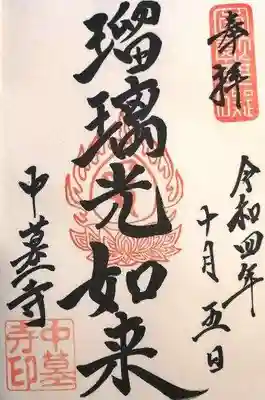 奉拝
令和四年
十月五日
瑠璃光如来
中墓寺
中墓
寺印